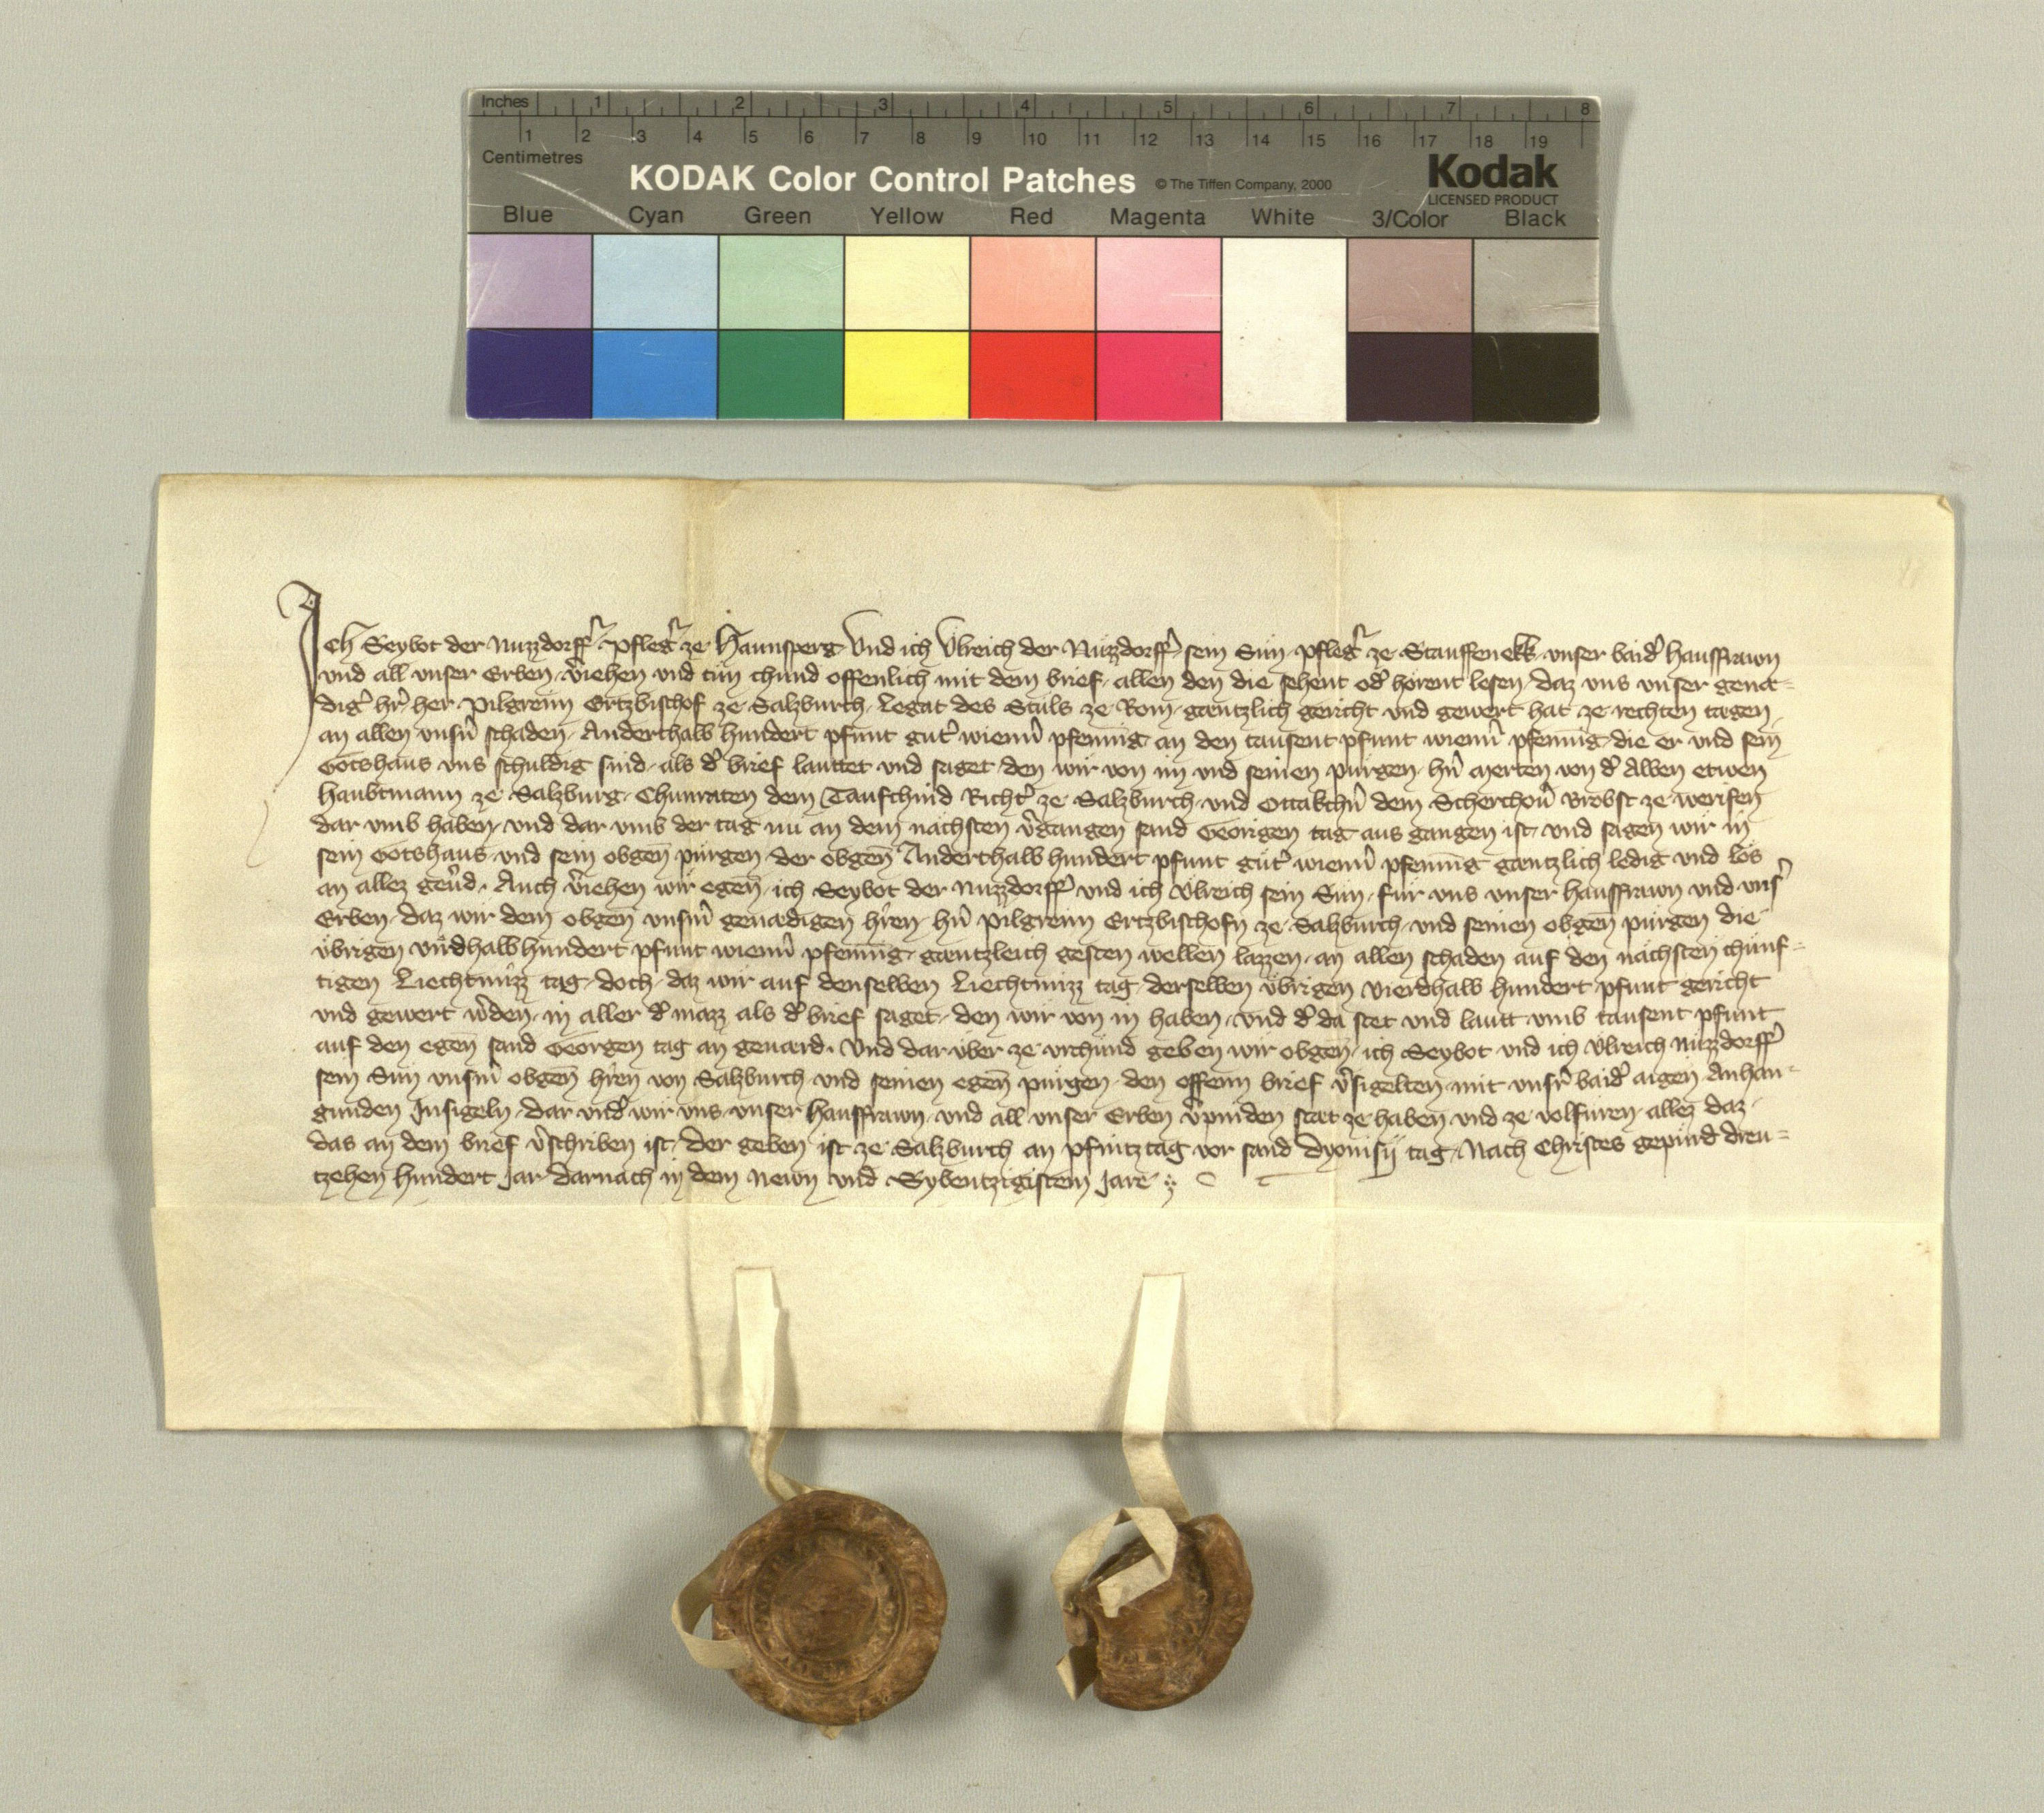 Inches 1 2 3 4 5 6 7 8
1 2 3 4 5 6 7 8 9 10 11 12 13 14 15 16 17 18 19
Centimetres
KODAK Color Control Patches © The Tiffen Company, 2000 Kodak
LICENSED PRODUCT
Blue Cyan Green Yellow Red Magenta White 3/Color Black
Ich Seybot der Nuzzdorffʼ Pflegʼ ze Haunsperg Vnd ich Ulreich der Nuzzdorffʼ sein Sun pflegʼ ze Stauffenekk vnser baidʼ hausfrawn
vnd all vnser Erben vʼiehen vnd tun chund offenlich mit dem brief allen den die sehent odʼ horent lesen daz vns vnser genæ=
digʼ hʼr her Pilgreim Ertzbischof ze Salzburch Legat des Stuls ze Rom gantzlich gericht vnd gewert hat ze rechten tagen
an allen vnsʼn schaden Anderthalb hundert pfunt gutʼ wiennʼ pfennig an den tausent pfunt wiennʼ pfennig die er vnd sein
Gotshaus vns schuldig sind als dʼ brief lauttet vnd saget den wir von im vnd seinen purgen hʼn Merten von dʼ Alben etwen
haubtmann ze Salzburg Chunraten dem Taufchind Richtʼ ze Salzburch vnd Ottakchʼn dem Scherchouʼ Brobst ze werfen
dar vmb haben vnd dar vmb der tag nu an dem nachsten vʼgangen sand Georigen tag aus gangen ist vnd sagen wir in
sein Gotshaus vnd sein obgen̄ purgen der obgen̄ Anderthalb hundert pfunt gutʼ wiennʼ pfennig gantzlich ledig vnd los
an allez geuʼd Auch vʼiehen wir egen̄ ich Seybot der Nuzzdorffʼ vnd ich Ulreich sein Sun fur vns vnser hausfrawn vnd vnsʼ
Erben daz wir dem obgen̄ vnsʼm genædigen hʼren hʼn Pilgreim Ertzbischofn ze Salzburch vnd seinen obgen̄ purgen die
vbrigen vierdhalb hundert pfunt wiennʼ pfennig gantzleich gesten wellen lazzen an allen schaden auf den nachsten chunf=
tigen Liechtmizz tag doch daz wir auf denselben Liechtmizz tag derselben vbrigen vierdhalb hundert pfunt gericht
vnd gewert wʼden in aller dʼ mazz als dʼ brief saget den wir von in haben vnd dʼ da stet vnd lautt vmb tausent pfunt
auf den egen̄ sand Georgen tag an geuard Vnd dar vber ze vrchund geben wir obgen̄ ich Seybot vnd ich Ulreich Nuzzdorffʼ
sein Sun vnsʼm obgen̄ hʼren von Salzburch vnd seinen egen̄ purgen den offenn brief vʼsigelten mit vnsʼr baidʼ aigen Anhan=
gunden Insigeln dar vndʼ wir vns vnser hausfrawn vnd all vnser Erben vʼpinden stat ze haben vnd ze volfuren allez daz
das an dem brief vʼschriben ist der geben ist ze Salzburch an Pfintztag vor sand Dyonisij tag Nach Christes gepurd dreu=
tzehen hundert Jar darnach in dem Newn vnd Sybentzigistem Jare